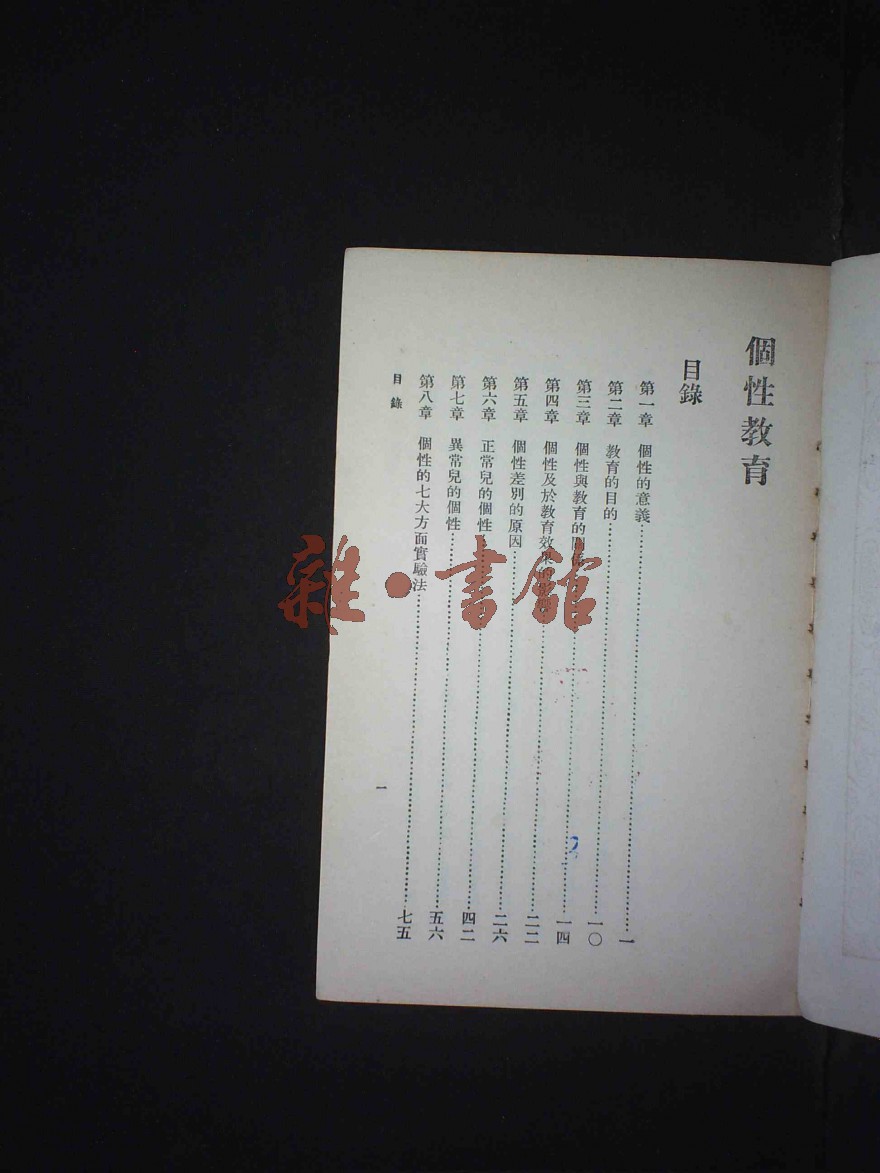 個性教育
目錄
第一章 個性的意義 一
第二章 教育的目的 一〇
第三章 個性與教育的關係 一四
第四章 個性及於教育效果的 二二
第五章 個性差別的原因 二六
第六章 正常兒的個性 四二
第七章 異常兒的個性 五六
第八章 個性的七大方面實驗法 七五
目錄 一
雜·書館